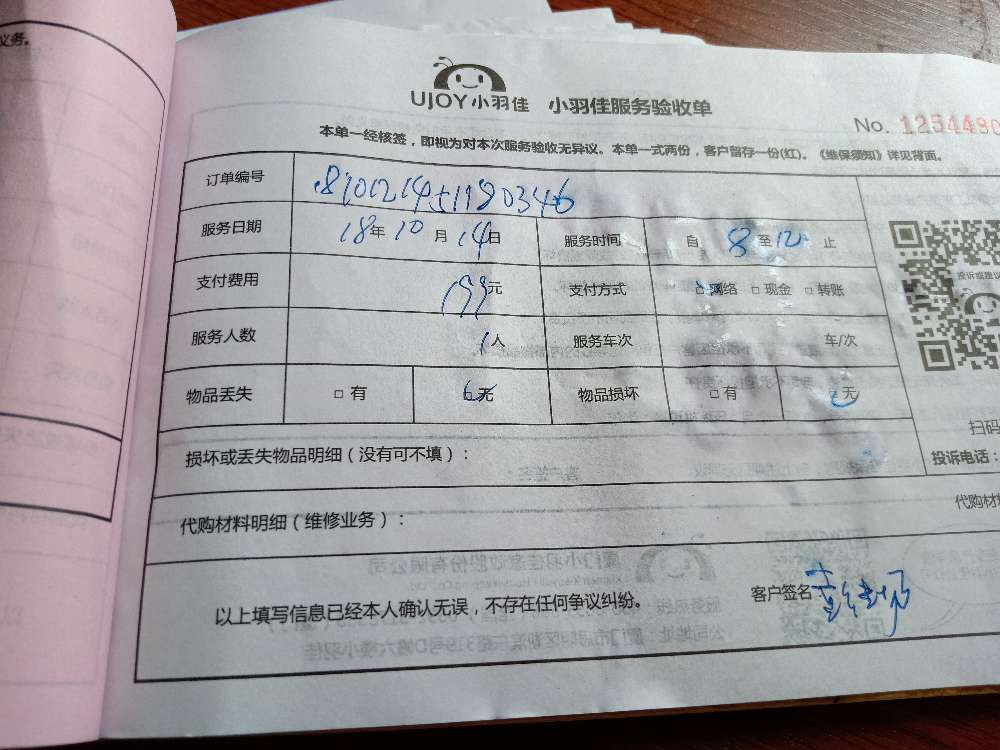 义务。
UJOY小羽佳 小羽佳服务验收单
No. 1254480
本单一经核签，即视为对本次服务验收无异议。本单一式两份，客户留存一份(红)。《维保须知》详见背面。
订单编号 810121451190346
服务日期 18年10月14日 服务时间 自8至12止
支付费用 199元 支付方式 □网络 □现金 □转账
服务人数 1人 服务车次 车/次
物品丢失 □有 无 物品损坏 □有 无
投诉或建议
扫码
损坏或丢失物品明细（没有可不填）：
投诉电话：
代购材料明细（维修业务）：
代购材料
以上填写信息已经本人确认无误，不存在任何争议纠纷。
客户签名